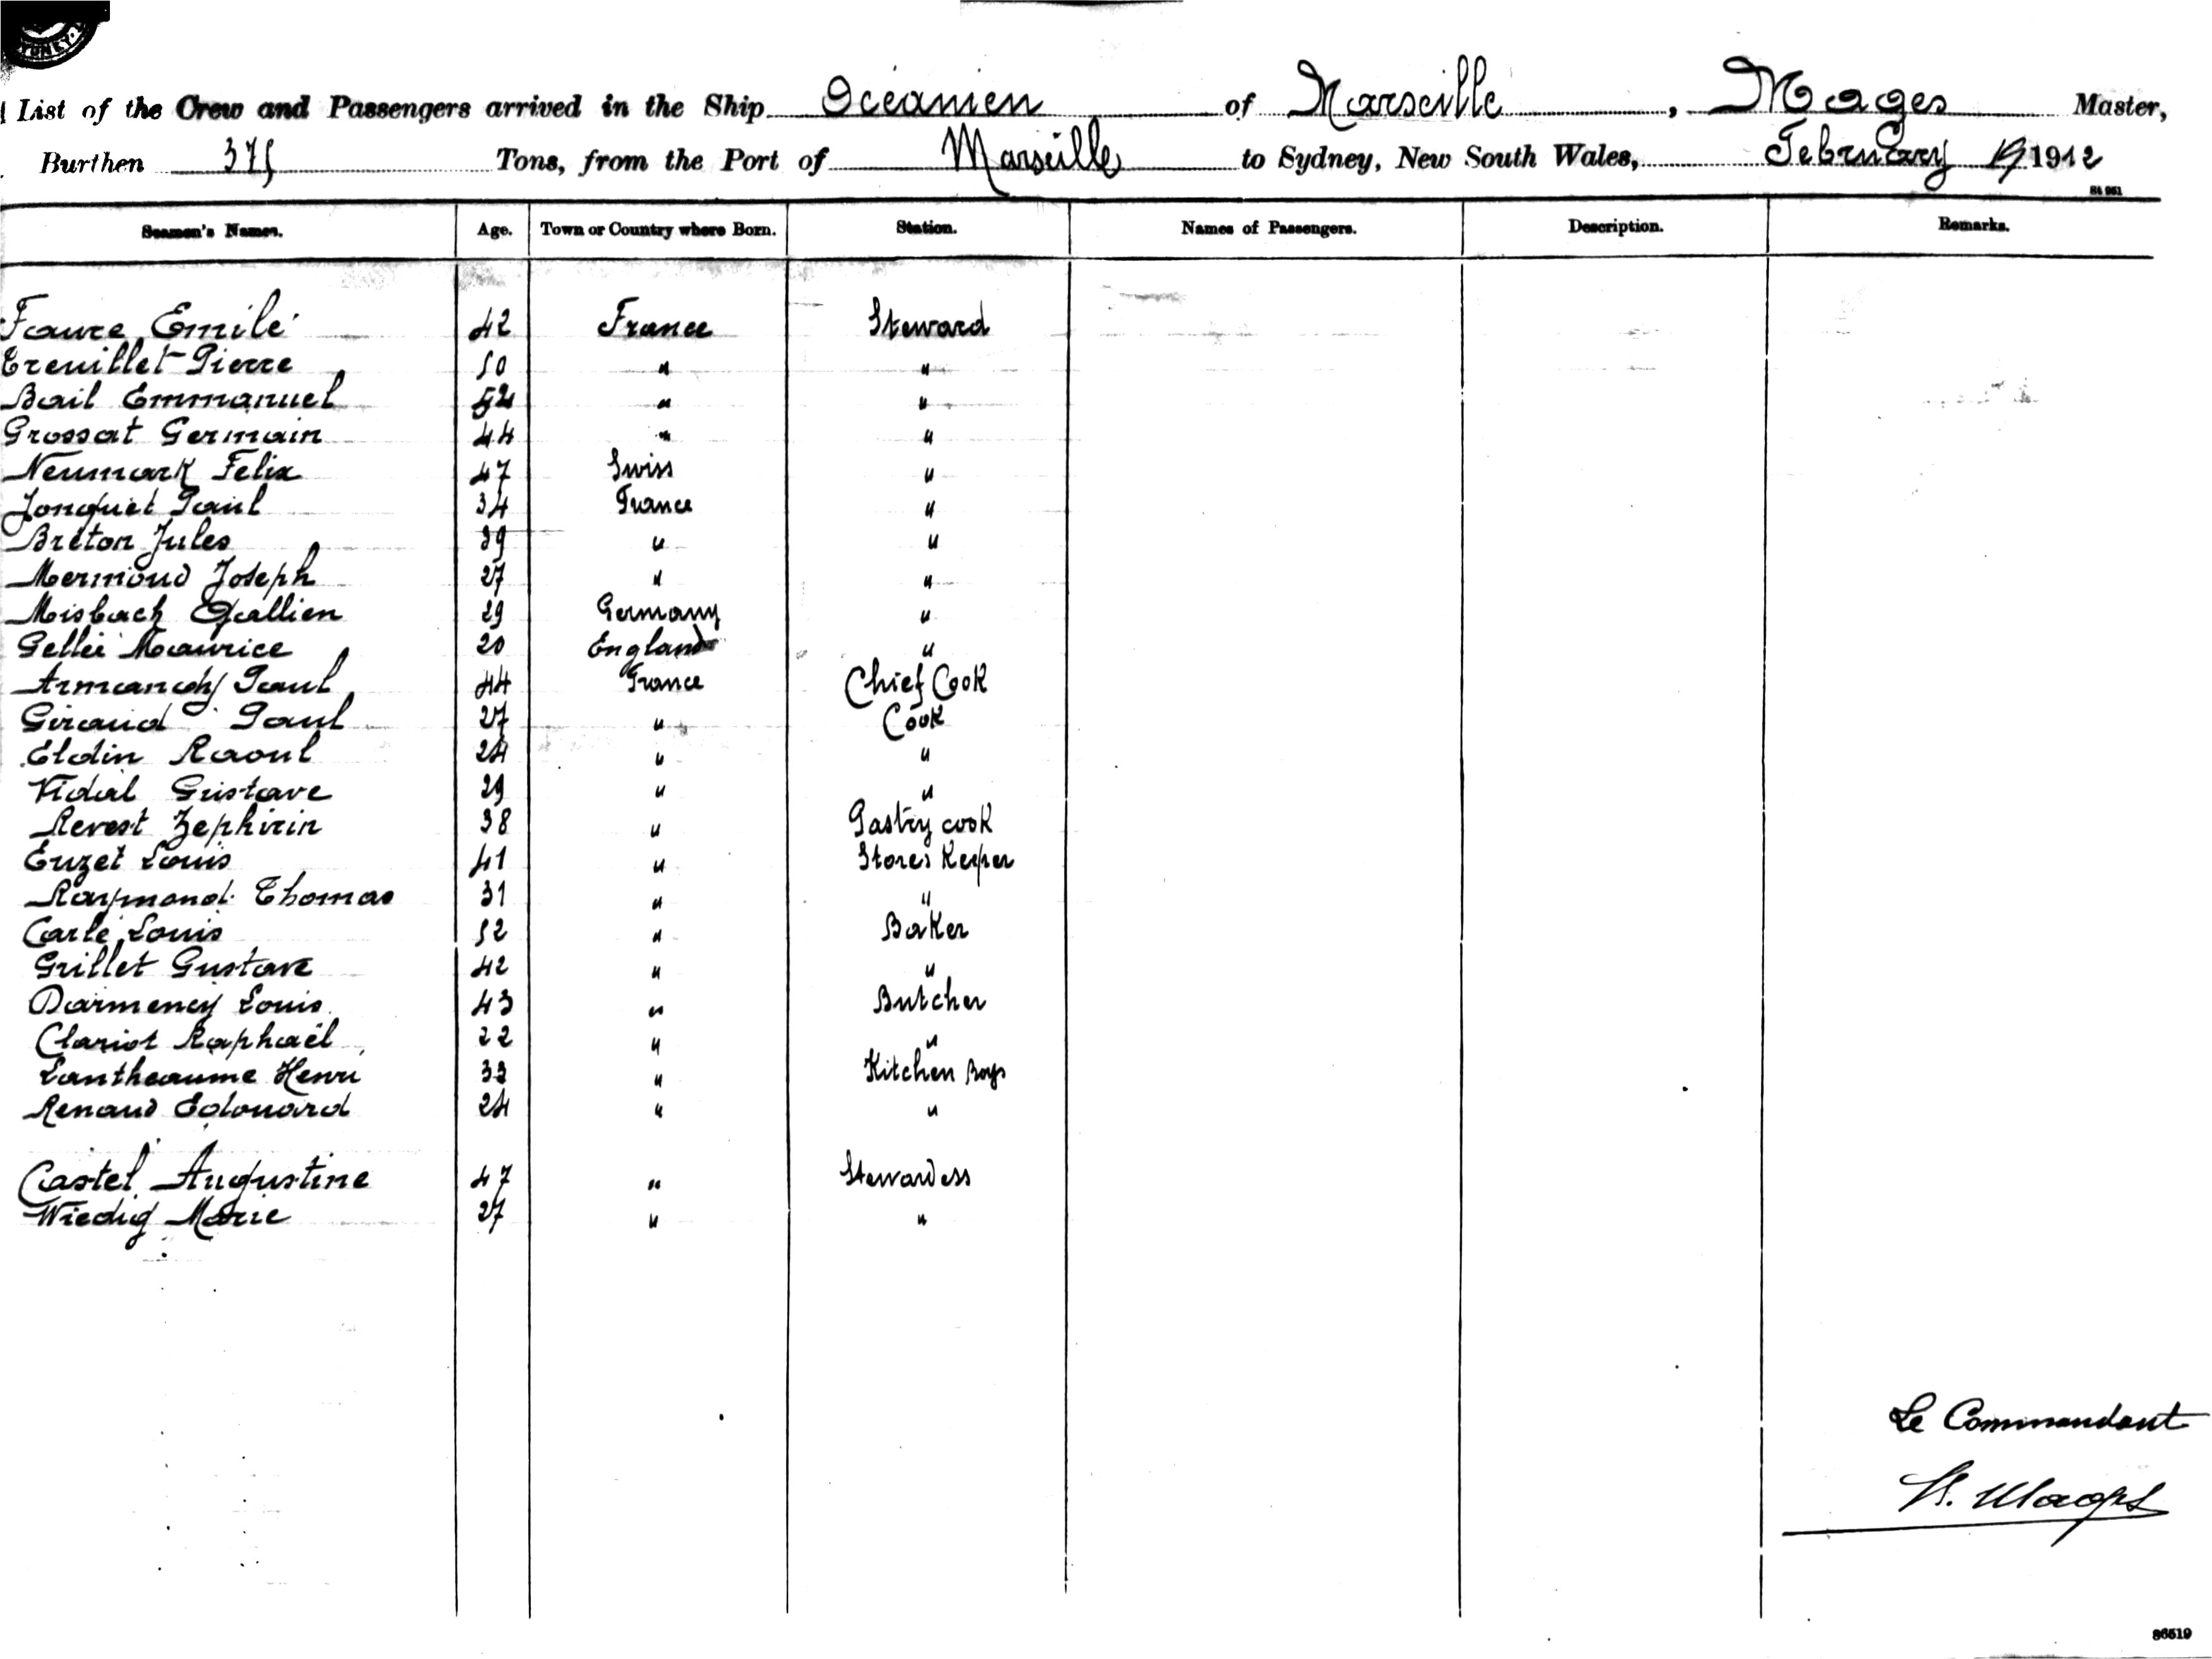 List of the Crew and Passengers arrived in the Ship Océanien of Marseille, Mages Master,
Burthen 375 Tons, from the Port of Marseille to Sydney, New South Wales, February 19 1912
Seamen's Names. Age. Town or Country where Born. Station. Names of Passengers. Description. Remarks.
Faure Emile 42 France Steward
Treuillet Pierre 50 " "
Bail Emmanuel 52 " "
Grossat Germain 44 " "
Neumark Felix 47 Swiss "
Jonquet Paul 34 France "
Breton Jules 39 " "
Mermoud Joseph 27 " "
Misbach Gallien 29 Germany "
Maurice 20 England "
Paul 44 France Chief Cook
Giraud Paul 27 " Cook
Eldin Raoul 24 " "
Vidal Gustave 29 " "
Revest Zephirin 38 " Pastry cook
Euzet Louis 41 " Stores Keeper
Raymond Thomas 31 " "
Carle Louis 52 " Baker
Grillet Gustave 42 " "
Darmency Louis 43 " Butcher
Clariot Raphaël 22 " "
Lantheaume Henri 33 " Kitchen Boys
Renaud Edouard 24 " "
Castel Augustine 47 " Stewardess
Wiedig Marie 27 " "
Le Commandant
86519